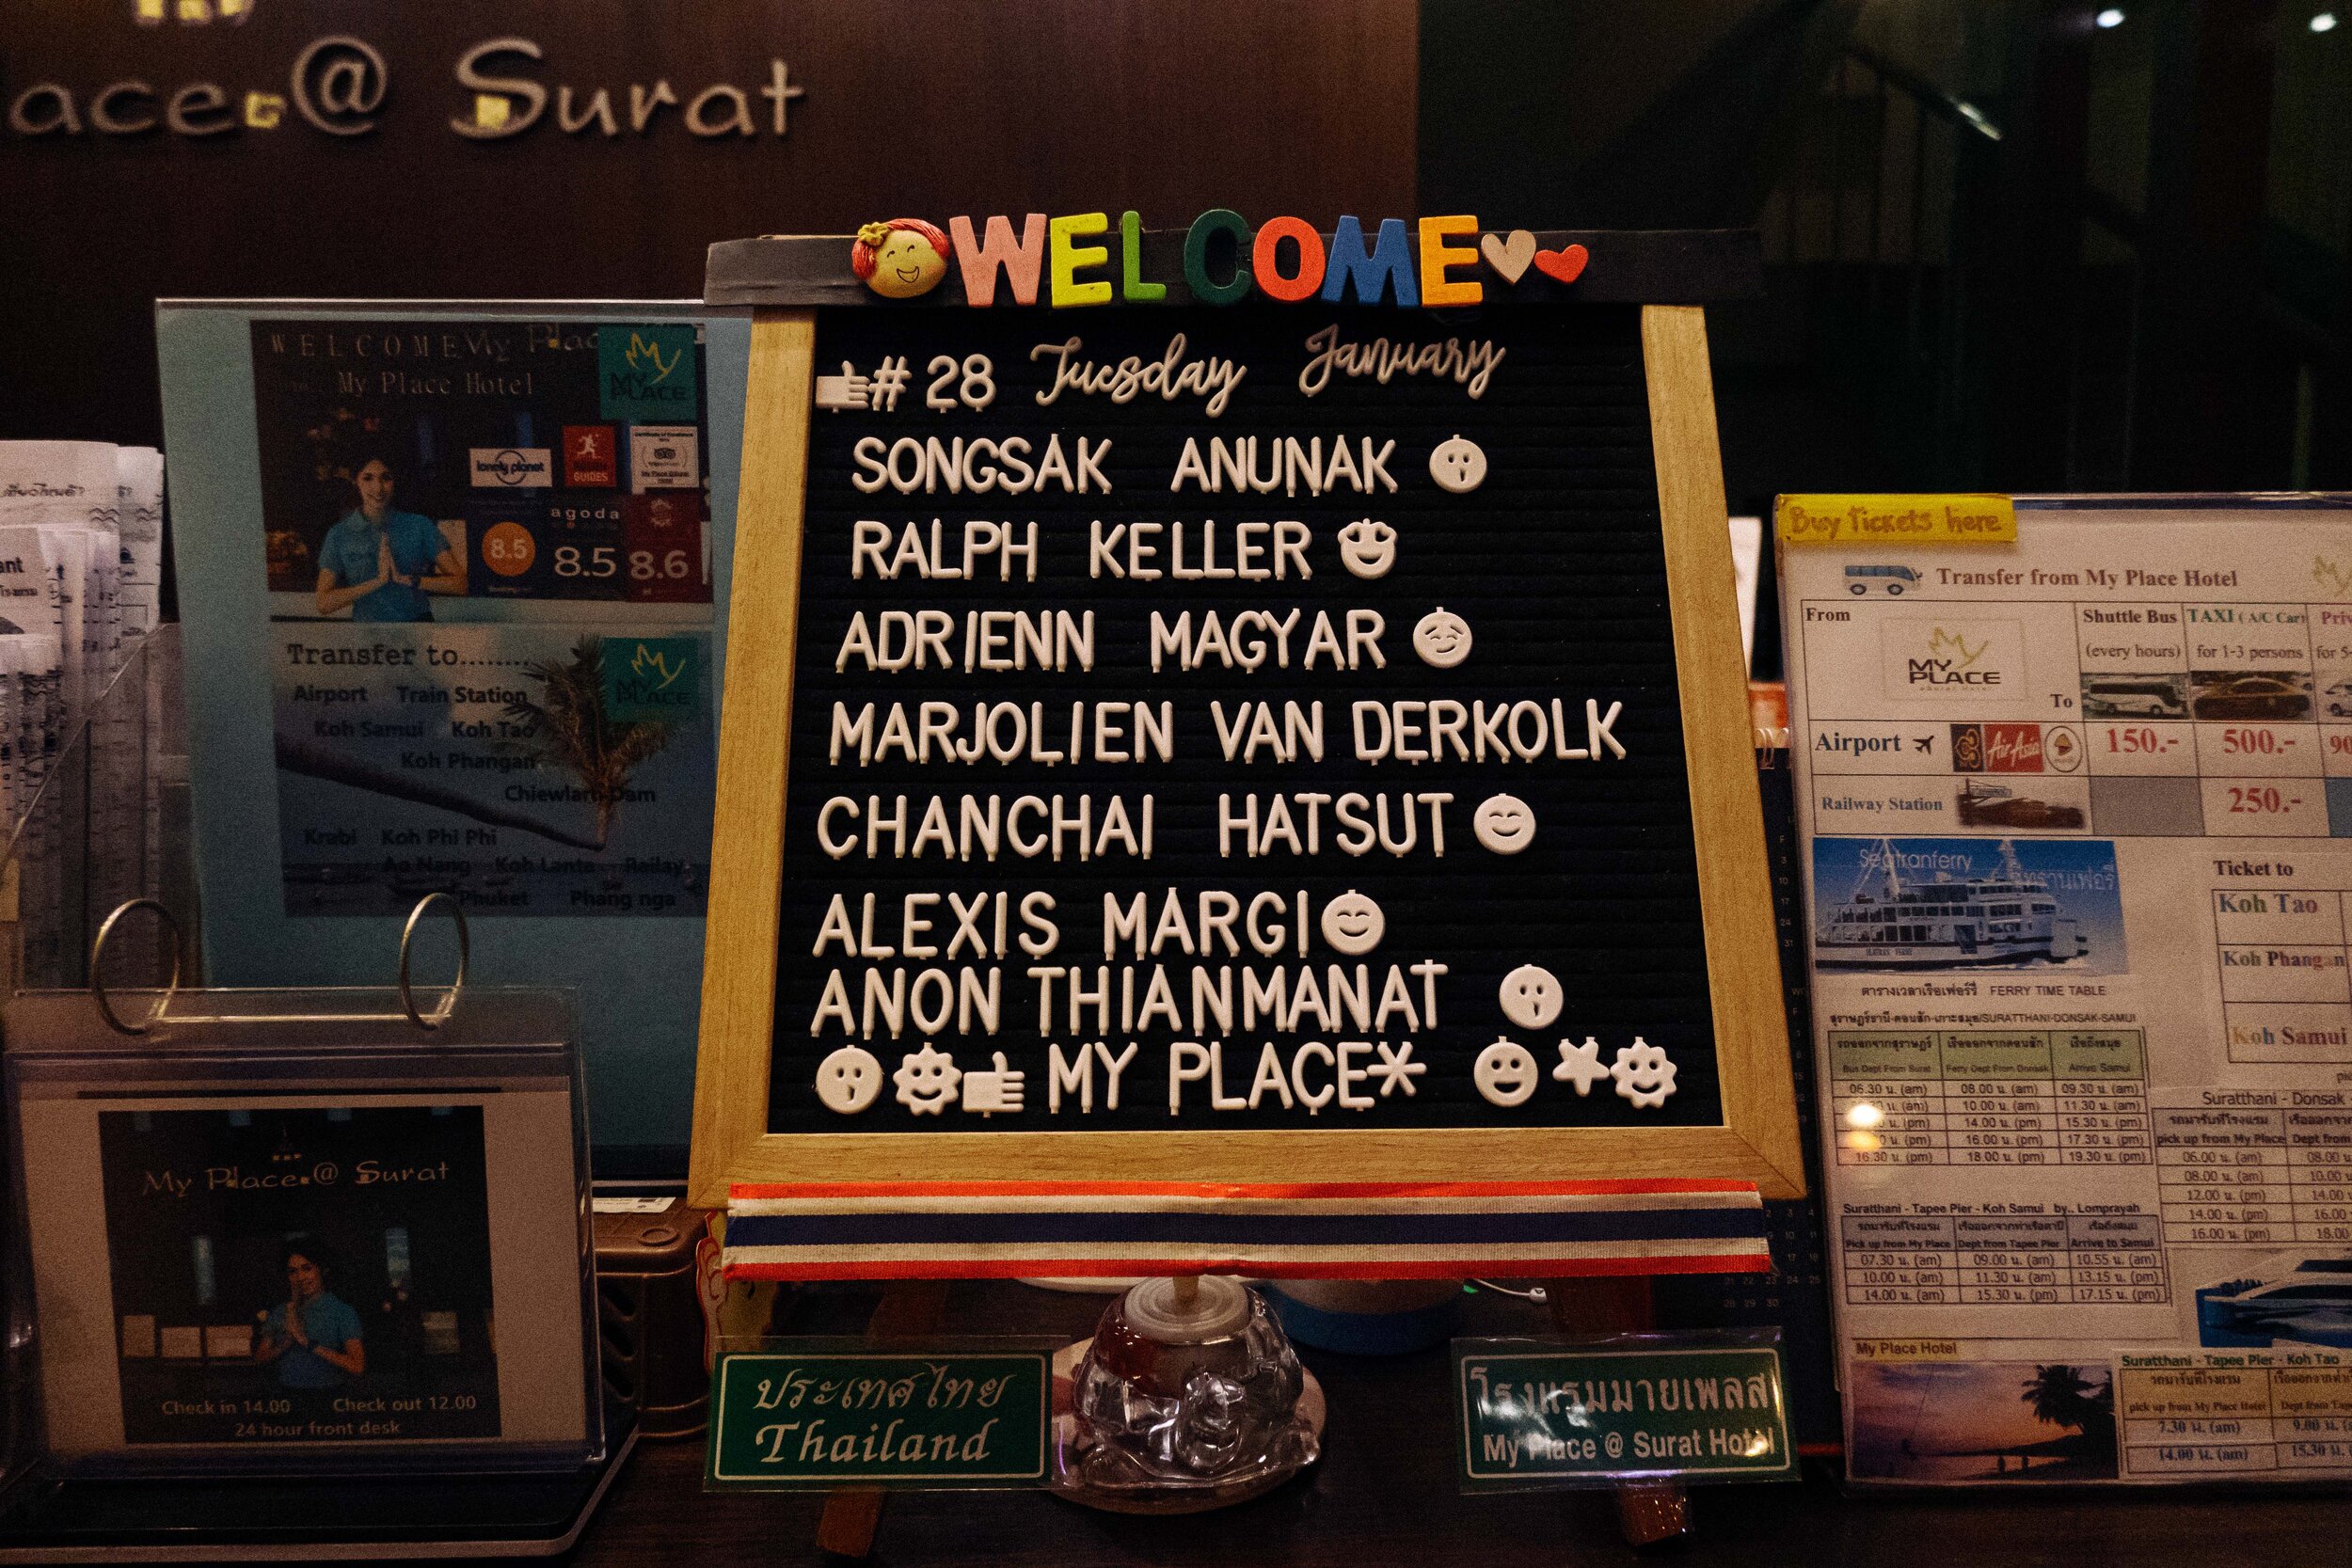 ace @ Surat
WELCOME
# 28 Tuesday January
SONGSAK ANUNAK
RALPH KELLER
ADRIENN MAGYAR
MARJOLIEN VAN DERKOLK
CHANCHAI HATSUT
ALEXIS MARGI
ANON THIANMANAT
MY PLACE*
ประเทศไทย
Thailand
โรงแรมมายเพลส
My Place @ Surat Hotel
WELCOME My Plac
My Place Hotel
MY PLACE
lonely planet
GUIDES
agoda
8.5
8.5
8.6
Transfer to........
MY PLACE
Airport Train Station
Koh Samui Koh Tao
Koh Phangan
Krabi Koh Phi Phi
Ao Nang Koh Lanta Railay
Phuket Phang nga
My Place @ Surat
Check in 14.00 Check out 12.00
24 hour front desk
Buy Tickets here
Transfer from My Place Hotel
From
MY PLACE
To
Shuttle Bus
(every hours)
TAXI ( A/C Car)
for 1-3 persons
for 5-
Airport
AirAsia
150.-
500.-
90
Railway Station
250.-
Seatranferry
ซีทรานเฟอร์รี่
Ticket to
Koh Tao
Koh Phangan
Koh Samui
ตารางเวลาเรือเฟอร์รี่ FERRY TIME TABLE
สุราษฎร์ธานี-ดอนสัก-เกาะสมุย/SURATTHANI-DONSAK-SAMUI
Bus Dept From Surat Ferry Dept From Donsak Arrive Samui
06.30 น. (am) 08.00 น. (am) 09.30 น. (am)
น. (am) 10.00 น. (am) 11.30 น. (am)
น. (pm) 14.00 น. (pm) 15.30 น. (pm)
น. (pm) 16.00 น. (pm) 17.30 น. (pm)
16.30 น. (pm) 18.00 น. (pm) 19.30 น. (pm)
Suratthani - Donsak
pick up from My Place Dept from
06.00 น. (am) 08.00
08.00 น. (am) 10.00
12.00 น. (pm) 14.00
14.00 น. (pm) 16.00
16.00 น. (pm) 18.00
Suratthani - Tapee Pier - Koh Samui by.. Lomprayah
Pick up from My Place Dept from Tapee Pier Arrive to Samui
07.30 น. (am) 09.00 น. (am) 10.55 น. (am)
10.00 น. (am) 11.30 น. (am) 13.15 น. (pm)
14.00 น. (am) 15.30 น. (pm) 17.15 น. (pm)
My Place Hotel
Suratthani - Tapee Pier - Koh Tao
pick up from My Place Hotel
7.30 น. (am) 9.00 น.
14.00 น. (am) 15.30 น.